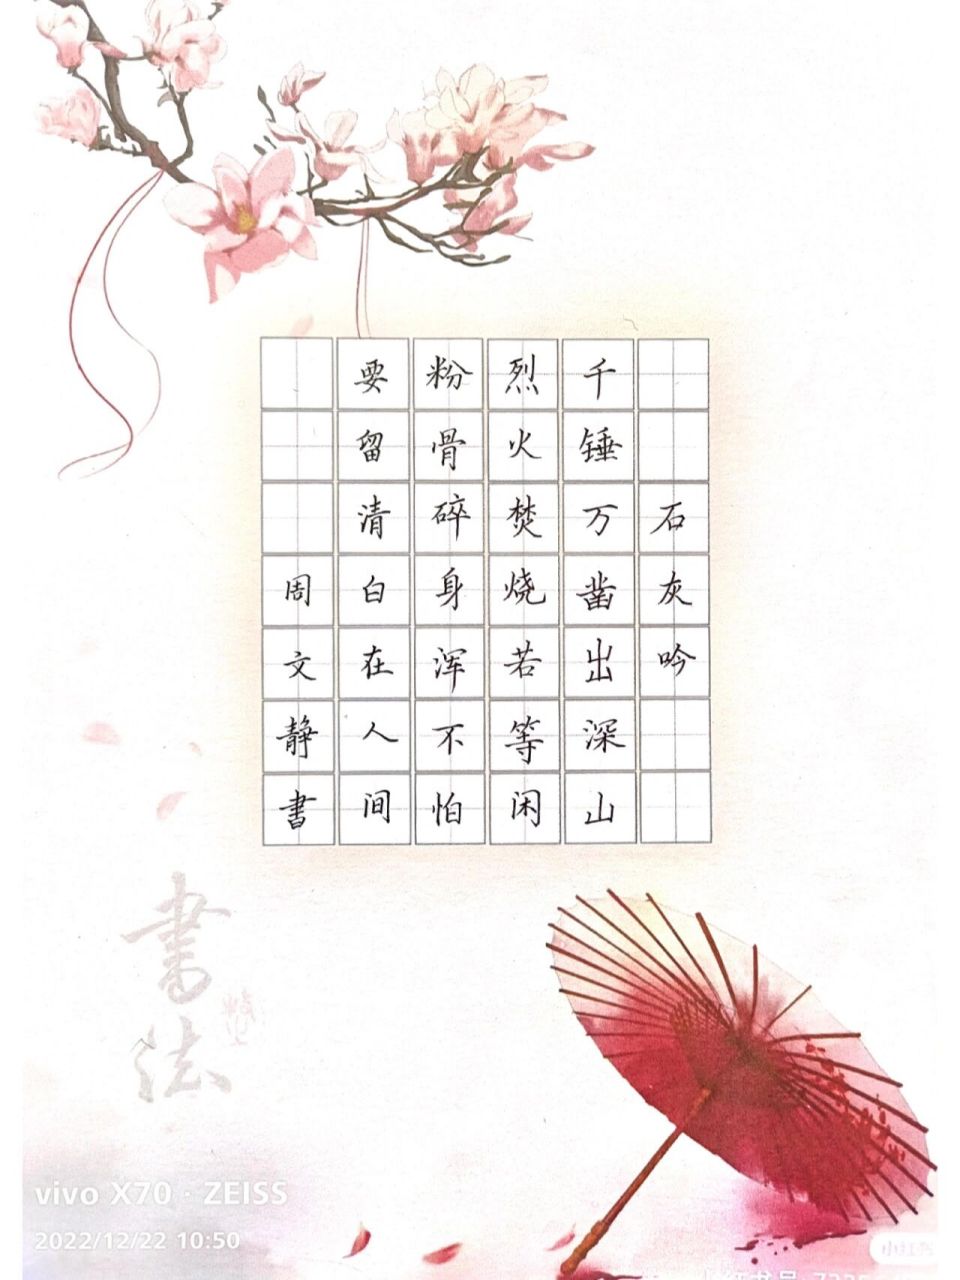 石灰吟
千锤万凿出深山
烈火焚烧若等闲
粉骨碎身浑不怕
要留清白在人间
周文静書
書法
vivo X70 · ZEISS
2022/12/22 10:50